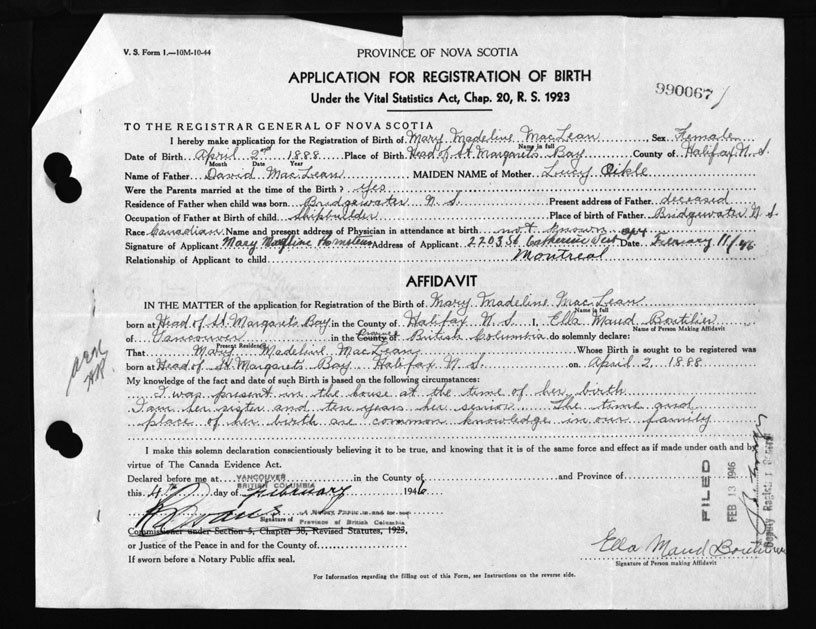 V. S. Form 1.—10M-10-44
PROVINCE OF NOVA SCOTIA
APPLICATION FOR REGISTRATION OF BIRTH
Under the Vital Statistics Act, Chap. 20, R. S. 1923
990067
TO THE REGISTRAR GENERAL OF NOVA SCOTIA
I hereby make application for the Registration of Birth of Mary Madeline MacLean Sex Female
Name in full
Date of Birth April 2nd 1888 Place of Birth Head of St Margarets Bay County of Halifax N. S.
Month Date Year
Name of Father David MacLean MAIDEN NAME of Mother Loucy
Were the Parents married at the time of the Birth? Yes
Residence of Father when child was born Bridgewater N. S. Present address of Father deceased
Occupation of Father at Birth of child Shipbuilder Place of birth of Father Bridgewater N S.
Race Canadian Name and present address of Physician in attendance at birth not known
Signature of Applicant Mary Address of Applicant 2203 St Catherine West Date 11/46
Relationship of Applicant to child Montreal
AFFIDAVIT
IN THE MATTER of the application for Registration of the Birth of Mary Madeline MacLean
Name in full
born at Head of St Margarets Bay in the County of Halifax N. S. I, Ella Maud Boutilier
Name of Person Making Affidavit
of Vancouver in the County of British Columbia do solemnly declare:
Present Residence
That Mary Madeline MacLean Whose Birth is sought to be registered was
born at Head of St. Margarets Bay Halifax N. S. on April 2, 1888
My knowledge of the fact and date of such Birth is based on the following circumstances:
I was present in the house at the time of her birth
I am her sister and ten years her senior. The time and
place of her birth are common knowledge in our family
I make this solemn declaration conscientiously believing it to be true, and knowing that it is of the same force and effect as if made under oath and by
virtue of The Canada Evidence Act.
Declared before me at VANCOUVER BRITISH COLUMBIA in the County of and Province of
this 4th day of February 1946
Signature of A Notary Public in and for the Province of British Columbia
Commissioner under Section 5, Chapter 38, Revised Statutes, 1923,
or Justice of the Peace in and for the County of
If sworn before a Notary Public affix seal.
FILED
FEB 13 1946
Ella Maud Boutilier
Signature of Person making Affidavit
For Information regarding the filling out of this Form, see Instructions on the reverse side.